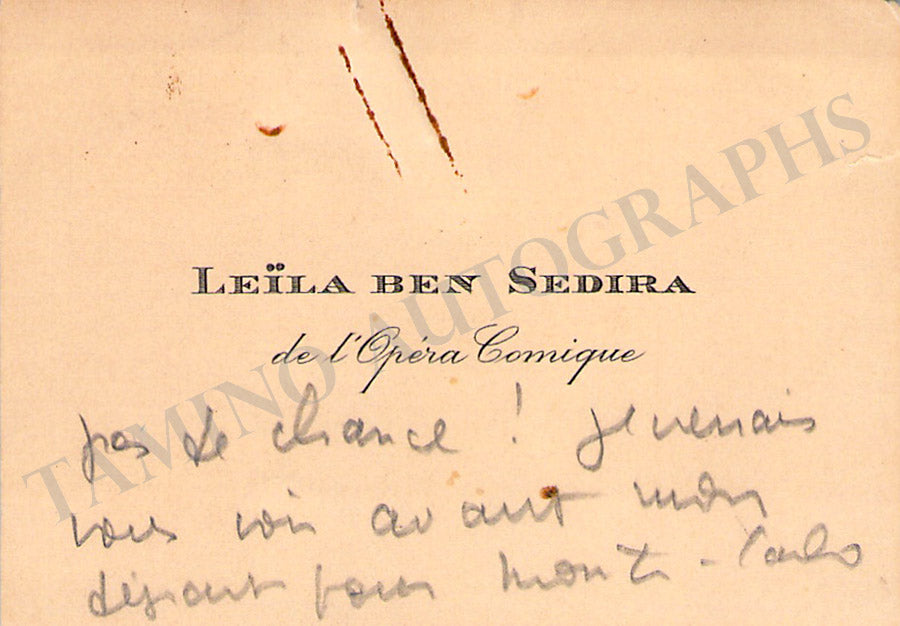 LEÏLA BEN SEDIRA
de l'Opéra Comique
pas de chance ! Je venais
vous voir avant mon
départ pour Monte-Carlo
TAMINO AUTOGRAPHS